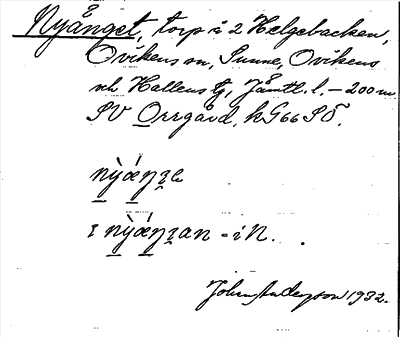 Nyånget, torp i 2 Helgebacken,
Ovikens sn, Sunne, Ovikens
och Hallens tg, Jämtl. l. – 200 m
SV Orrgård, k G66 SÖ.
nỳǽŋʒe
ɪ nỳǽŋʒan = i N.
1932.